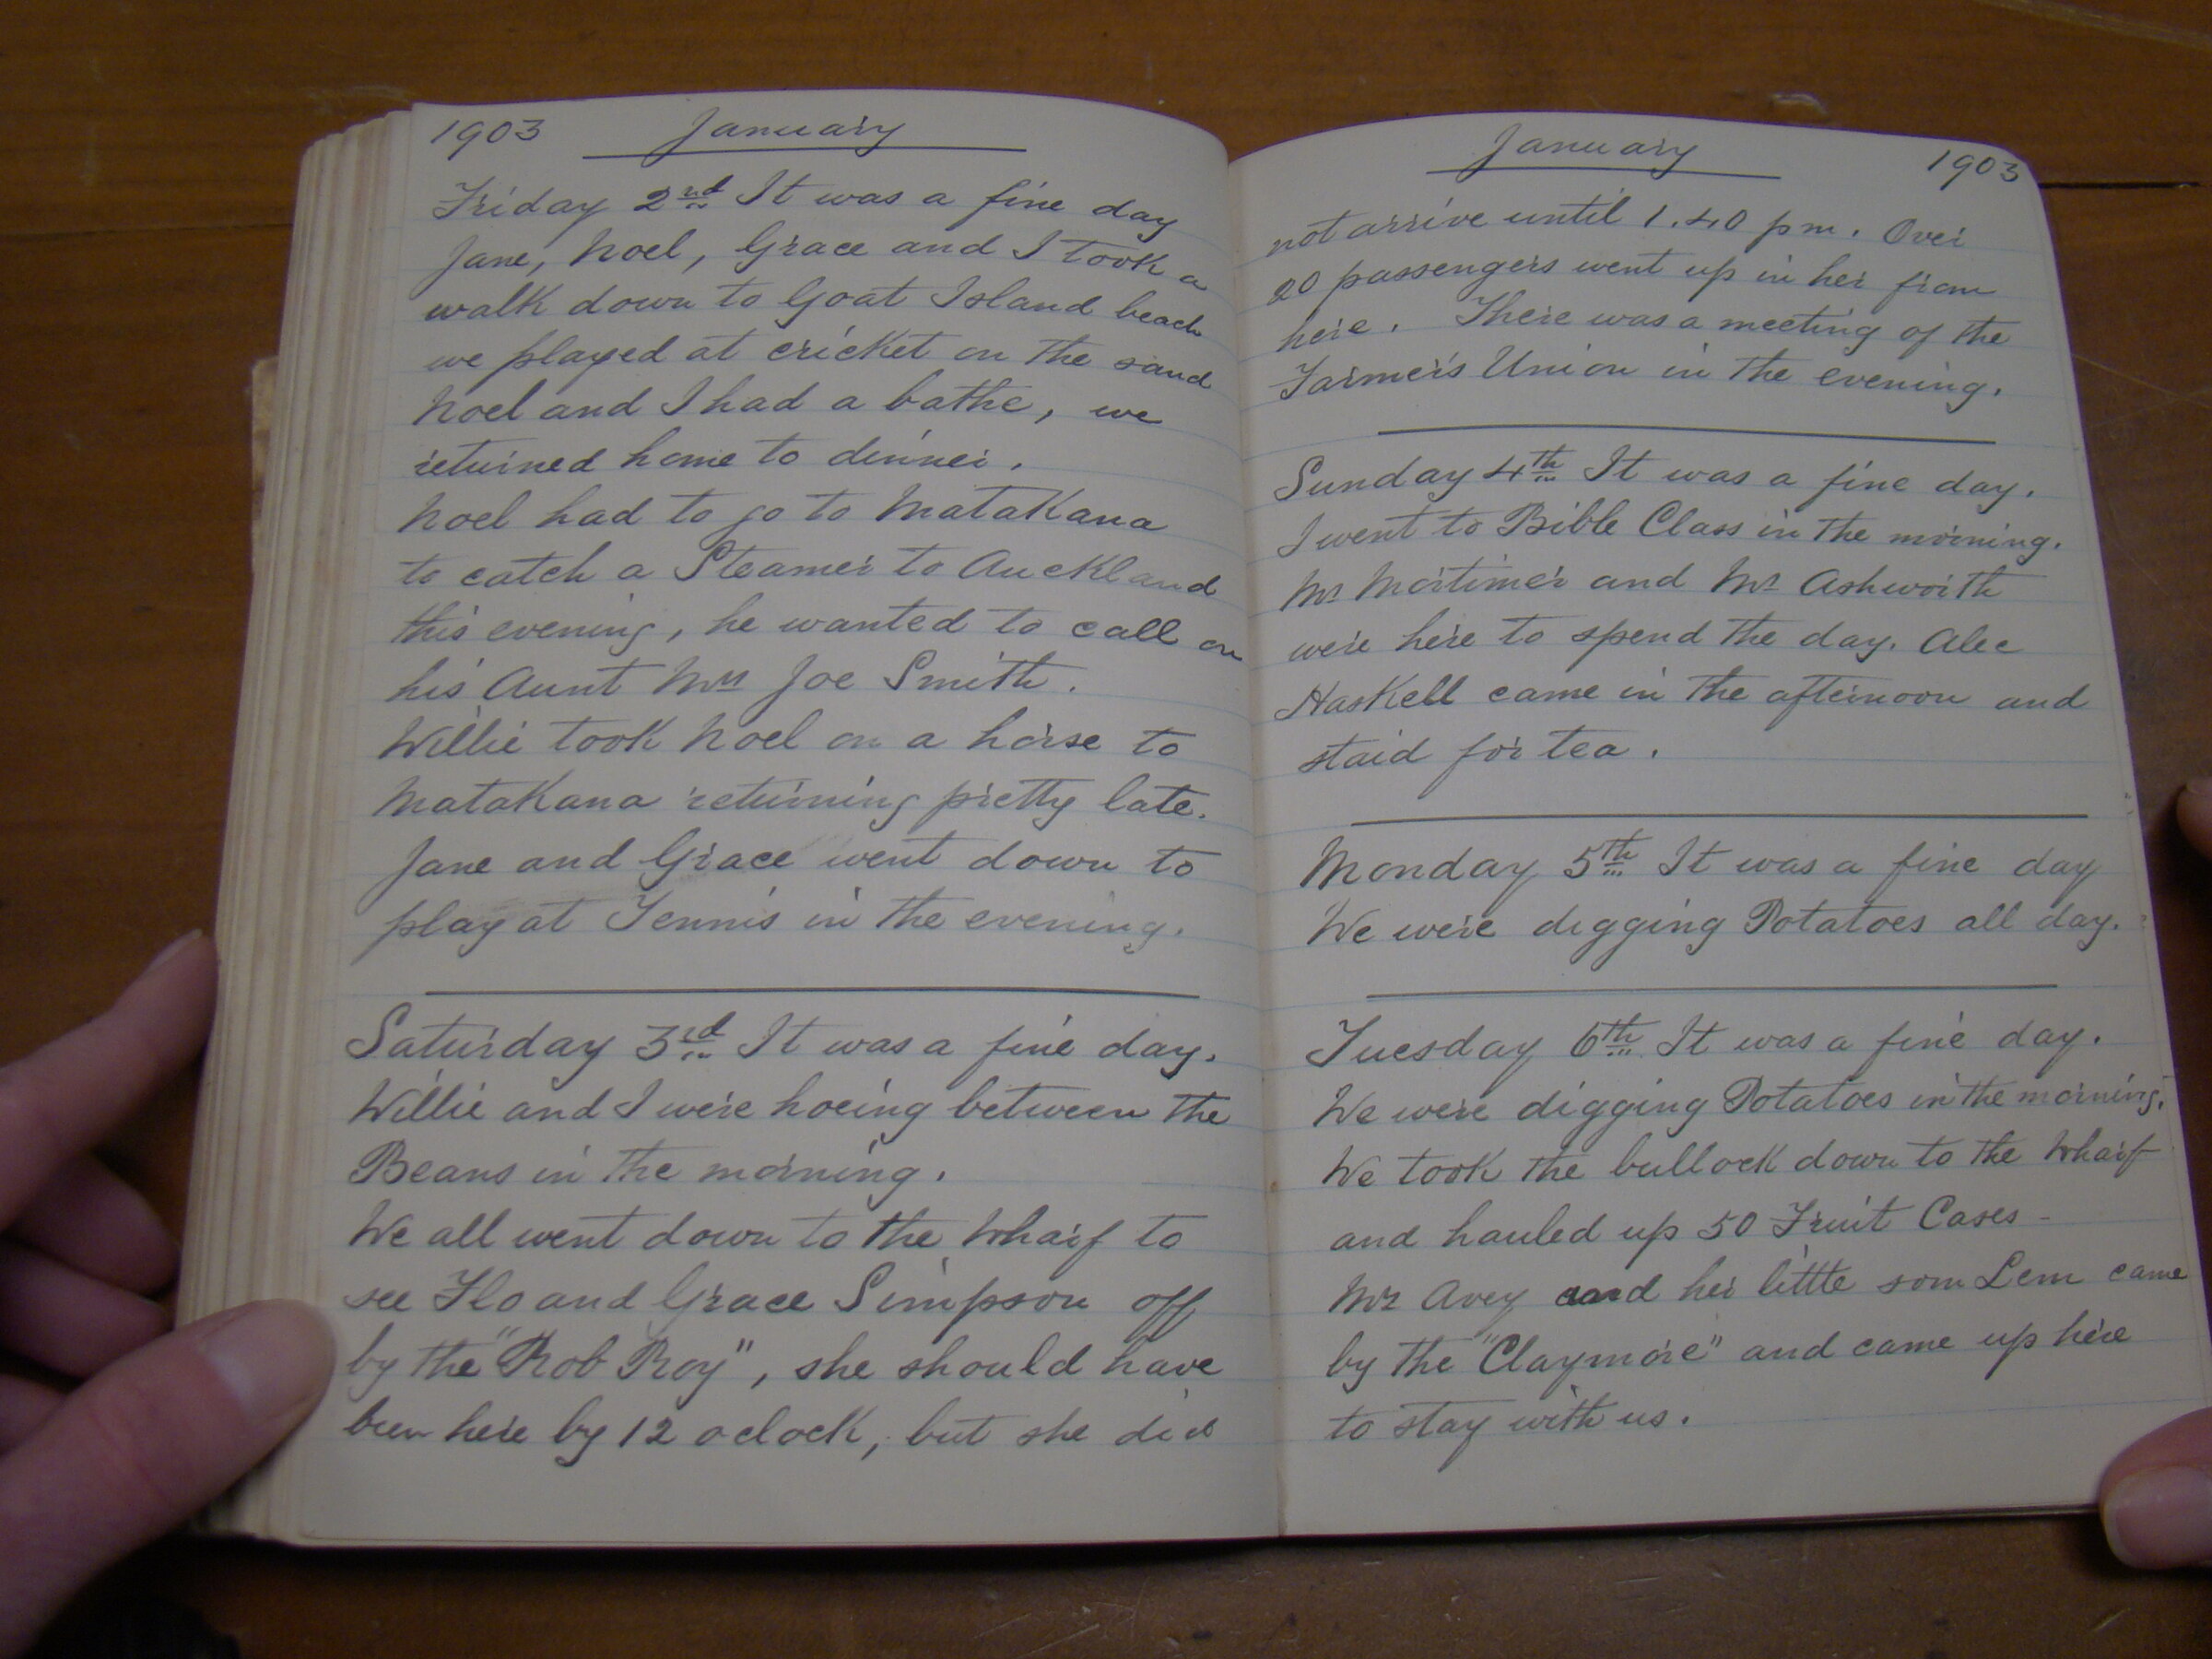 1903 January
Friday 2nd It was a fine day
Jane, Noel, Grace and I took a
walk down to Goat Island beach
we played at cricket on the sand
Noel and I had a bathe, we
returned home to dinner.
Noel had to go to Matakana
to catch a Steamer to Auckland
this evening, he wanted to call on
his Aunt Mrs Joe Smith.
Willie took Noel on a horse to
Matakana returning pretty late.
Jane and Grace went down to
play at Tennis in the evening.
Saturday 3rd It was a fine day.
Willie and I were hoeing between the
Beans in the morning.
We all went down to the Wharf to
see Flo and Grace Simpson off
by the "Rob Roy", she should have
been here by 12 oclock, but she did
January 1903
not arrive until 1.40 pm. Over
20 passengers went up in her from
here. There was a meeting of the
Farmer's Union in the evening.
Sunday 4th It was a fine day.
I went to Bible Class in the morning.
Mr Mortimer and Mr Ashworth
were here to spend the day. Alec
Haskell came in the afternoon and
staid for tea.
Monday 5th It was a fine day
We were digging Potatoes all day.
Tuesday 6th It was a fine day.
We were digging Potatoes in the morning.
We took the bullock down to the Wharf
and hauled up 50 Fruit Cases -
Mrs Avey and her little som Lem came
by the "Claymore" and came up here
to stay with us.